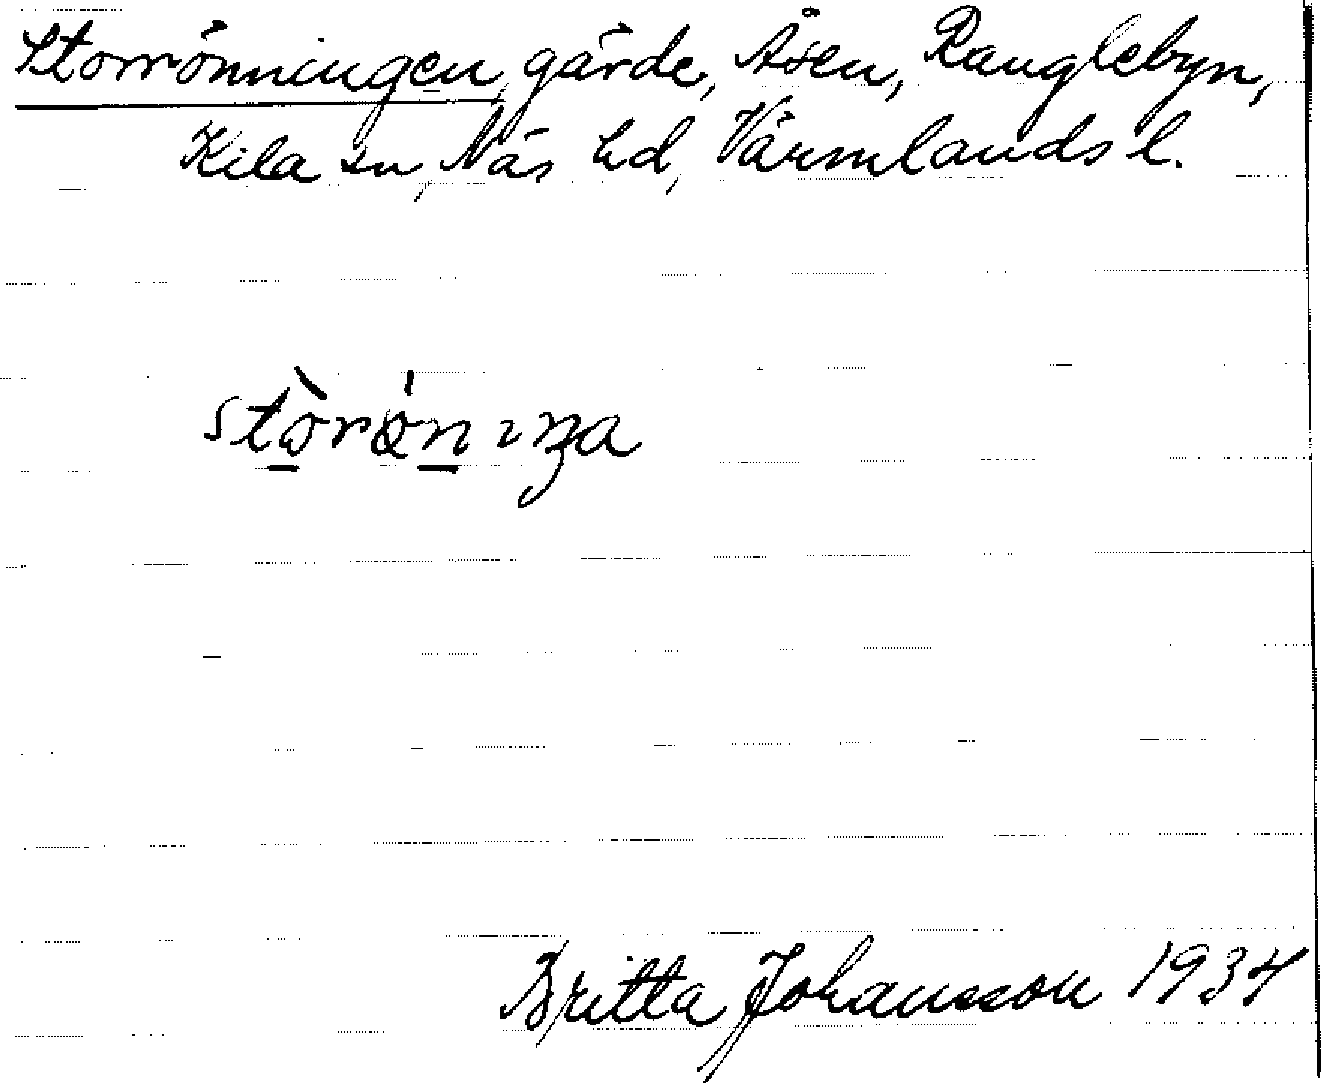 Storrönningen, gärde, Åsen, Ranglebyn,
Kila sn, Näs hd, Värmlands l.
Britta Johansson 1934